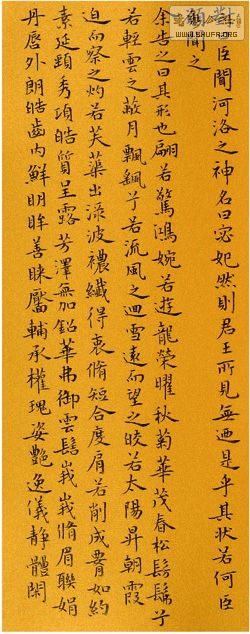 臣聞河洛之神名曰宓妃然則君王所見無迺是乎其狀若何臣
願聞之
余告之曰其形也翩若驚鴻婉若遊龍榮曜秋菊華茂春松髣髴兮
若輕雲之蔽月飄颻兮若流風之迴雪遠而望之皎若太陽昇朝霞
迫而察之灼若芙蕖出淥波襛纖得衷脩短合度肩若削成腰如約
素延頸秀項皓質呈露芳澤無加鉛華弗御雲髻峩峩脩眉聯娟
丹唇外朗皓齒內鮮明眸善睞靨輔承權瑰姿艷逸儀靜體閑
WWW.SHUFA.ORG